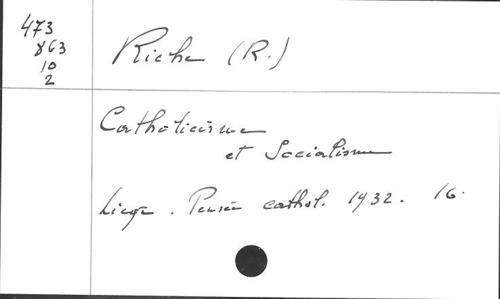 473
863
10
2
Riche (R.)
Catholicisme
et Socialisme
Liège. Pensée cathol. 1932. 16.